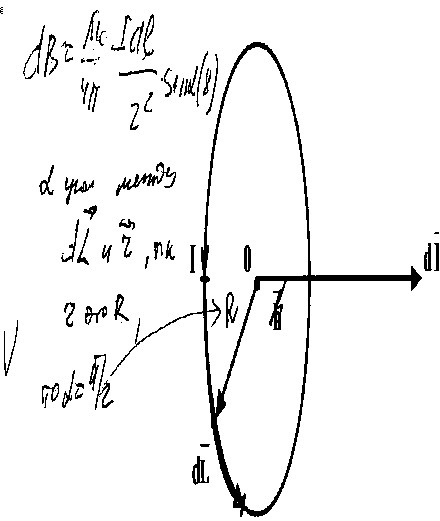 dB = μ₀/4π Idl/r² · sinα (8)
α угол между
dL и r, т.к.
r это R,
то α = π/2
I
0
dB
R
n
dL